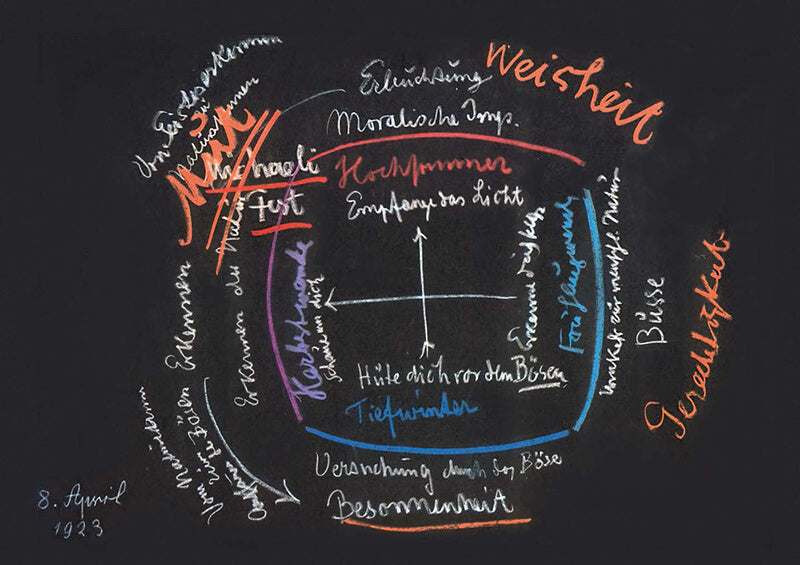 Erleuchtung
Weisheit
Moralische Imp.
Hochsommer
Empfange das Licht
Mut
Michaeli
Fest
Herbstwende
Schaue um dich
Erkennen der Natur
Erkennen
Erkenne dich
Frühlingswende
Umkehr zur menschl. Natur
Büsse
Gerechtigkeit
Hüte dich vor dem Bösen
Tiefwinter
Versuchung durch das Böse
Besonnenheit
8. April
1923